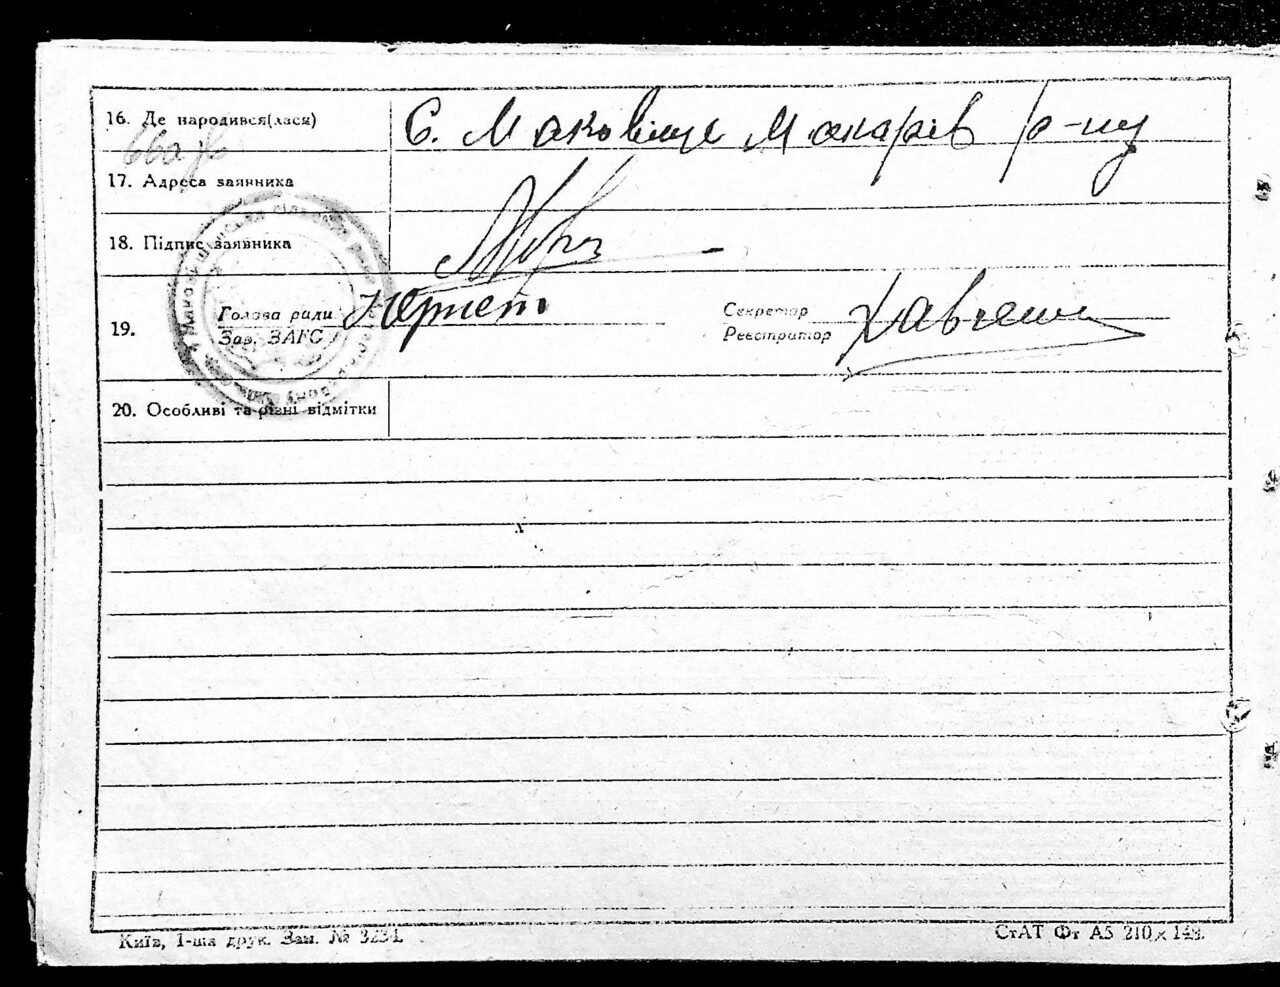 16. Де народився(лася) С. Маковище Макарів р-ну
17. Адреса заявника
18. Підпис заявника
19. Голова ради Секретар
Зав. ЗАГС Реєстратор
20. Особливі та різні відмітки
Київ, 1-ша друк. Зам. № 3234. СтАТ Фт А5 210 х 148.